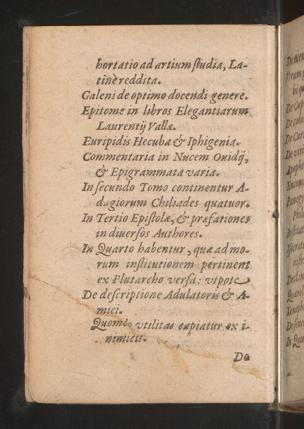 hortatio ad artium studia, La-
tine reddita.
Galeni de optimo docendi genere.
Epitome in libros Elegantiarum
Laurentij Vallæ.
Euripidis Hecuba & Iphigenia.
Commentaria in Nucem Ouidij,
& Epigrammata varia.
In secundo Tomo continentur A-
dagiorum Chiliades quatuor.
In Tertio Epistolæ, & præfationes
in diuersos Authores.
In Quarto habentur, quæ ad mo-
rum institutionem pertinent
ex Plutarcho versa: vtpote
De descriptione Adulatoris & A-
mici.
Quomodo vtilitas capiatur ex i-
nimicis.
De